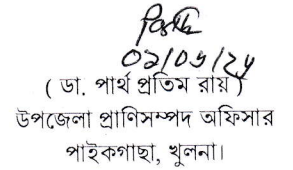 ( ডা. পার্থ প্রতিম রায় )
উপজেলা প্রাণিসম্পদ অফিসার
পাইকগাছা, খুলনা।